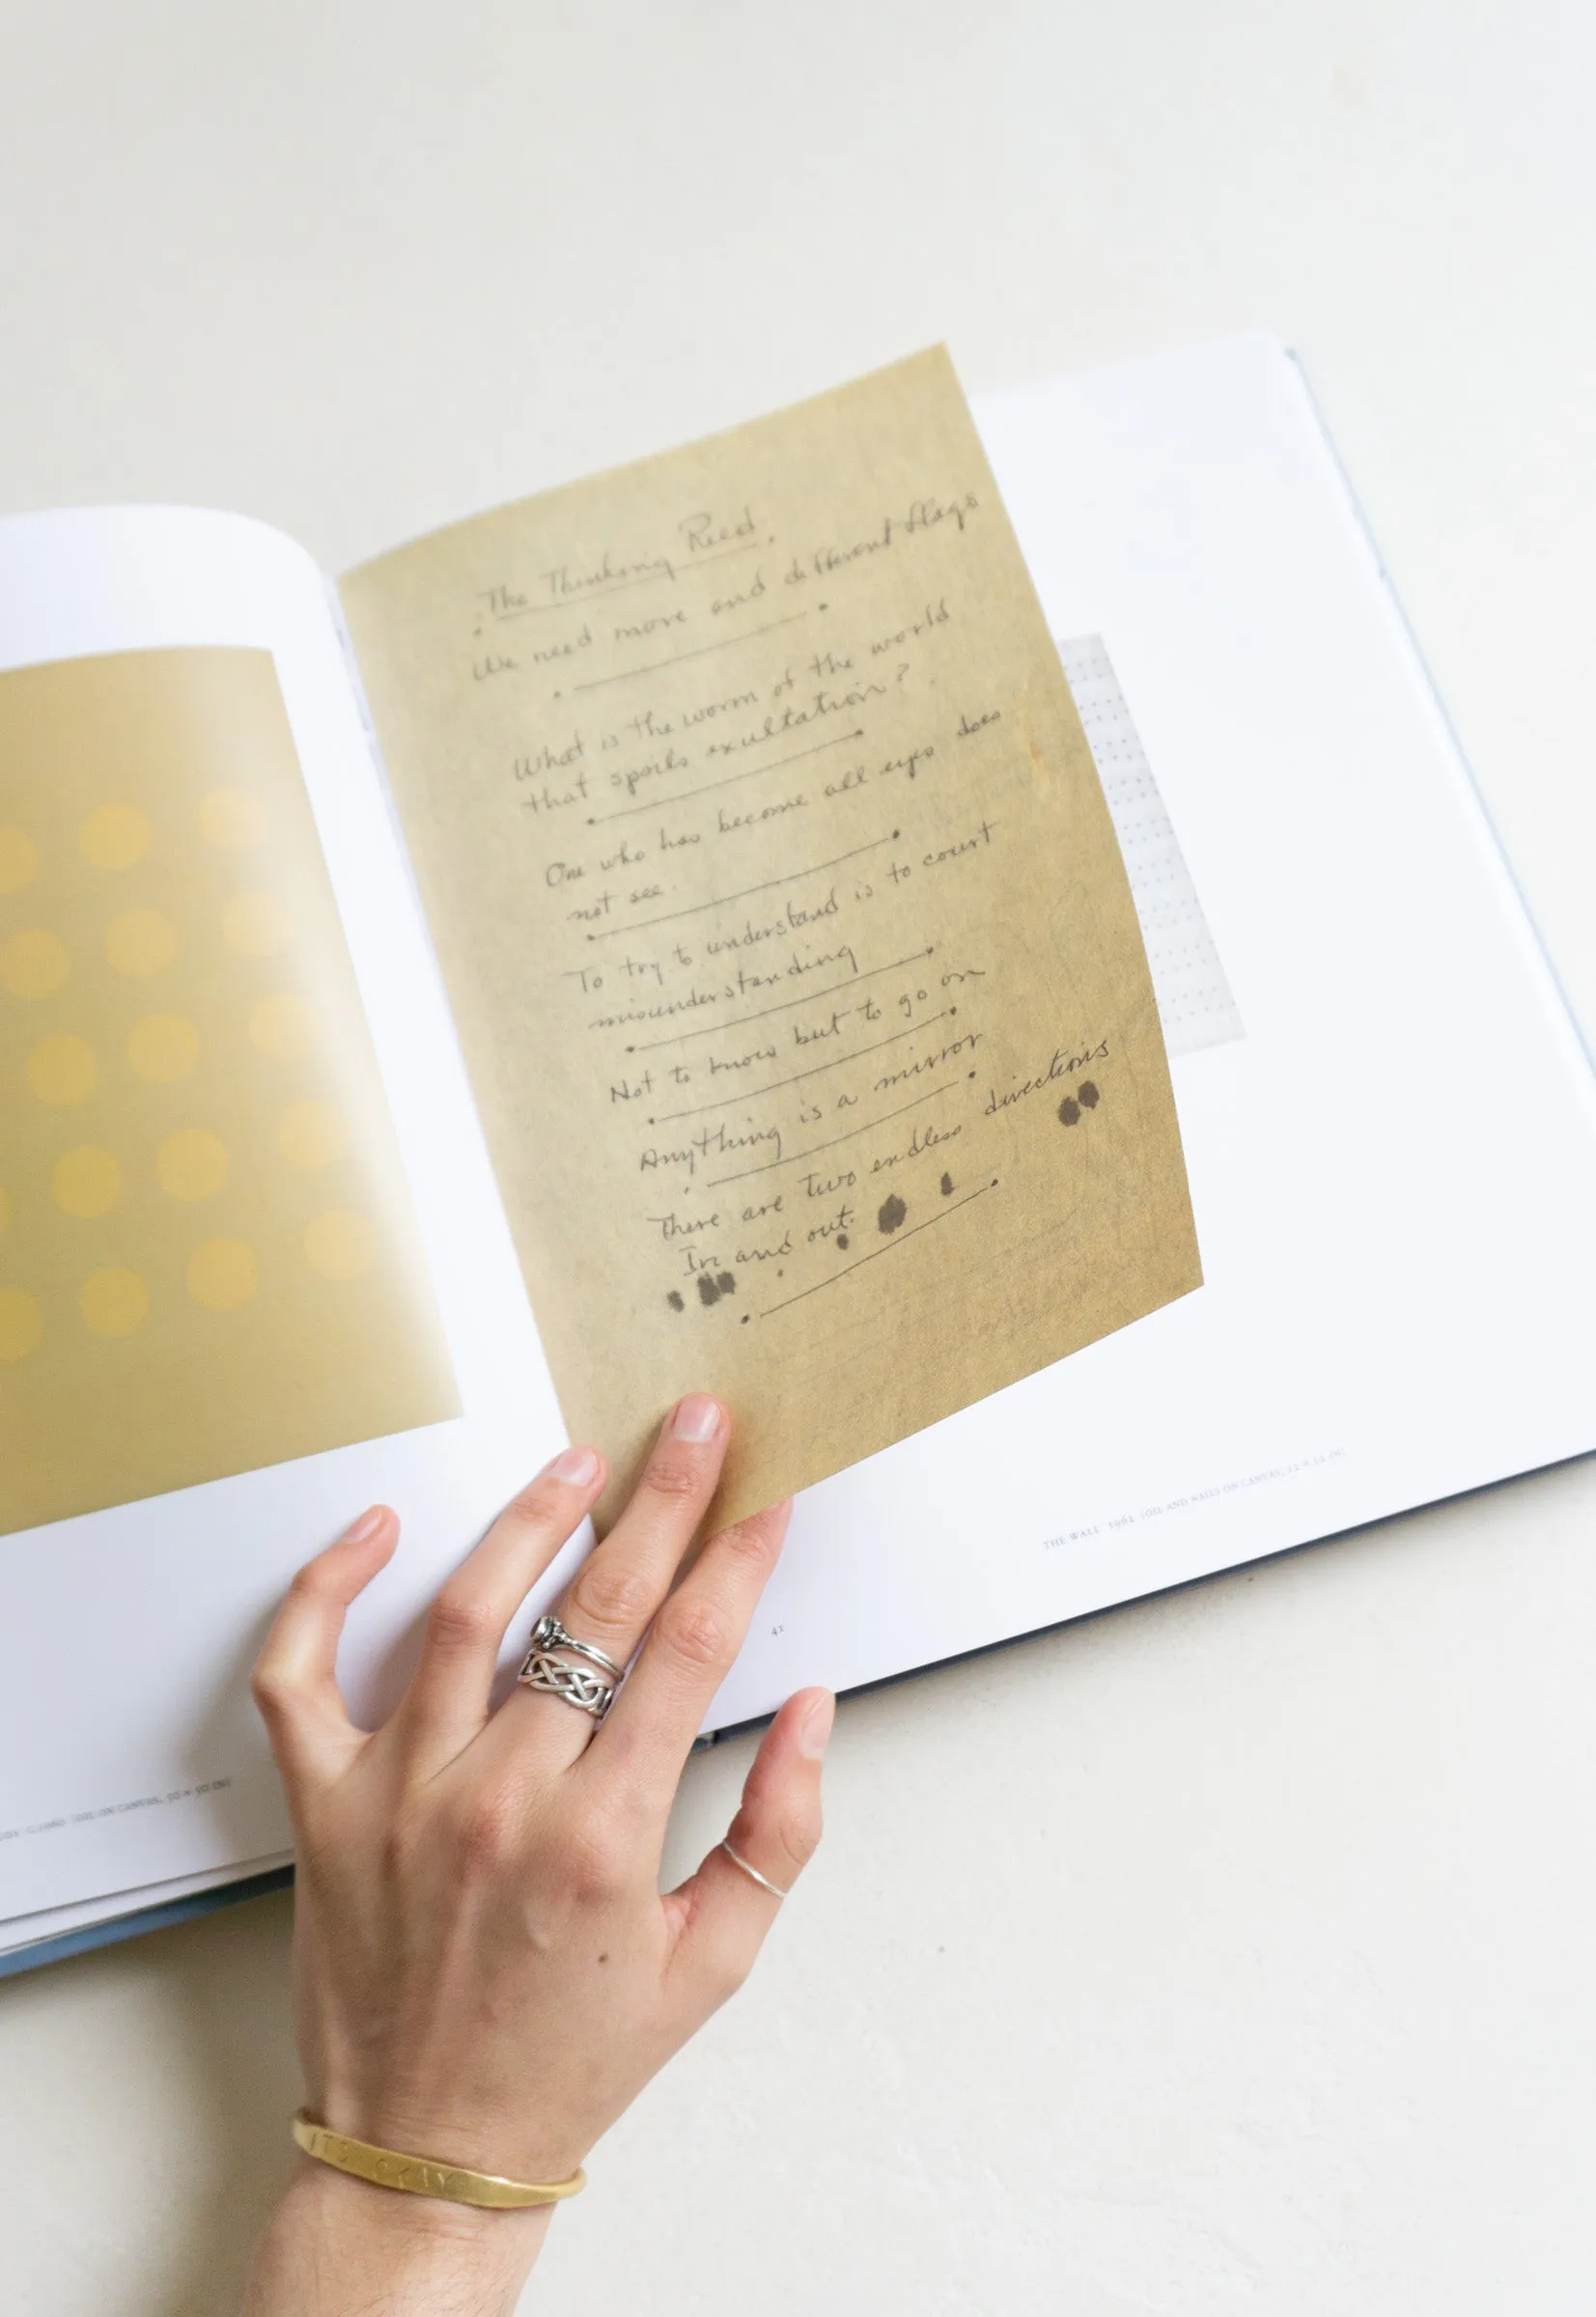 The Thinking Reed.
We need more and different flags
What is the worm of the world
that spoils exultation?
One who has become all eyes does
not see.
To try to understand is to court
misunderstanding
Not to know but to go on
Anything is a mirror
There are two endless directions
In and out.
THE WALL 1962 (OIL AND NAILS ON CANVAS, 12 × 12 IN)
41
C.1960 (OIL ON CANVAS, 50 × 50 IN)
ITS OKAY